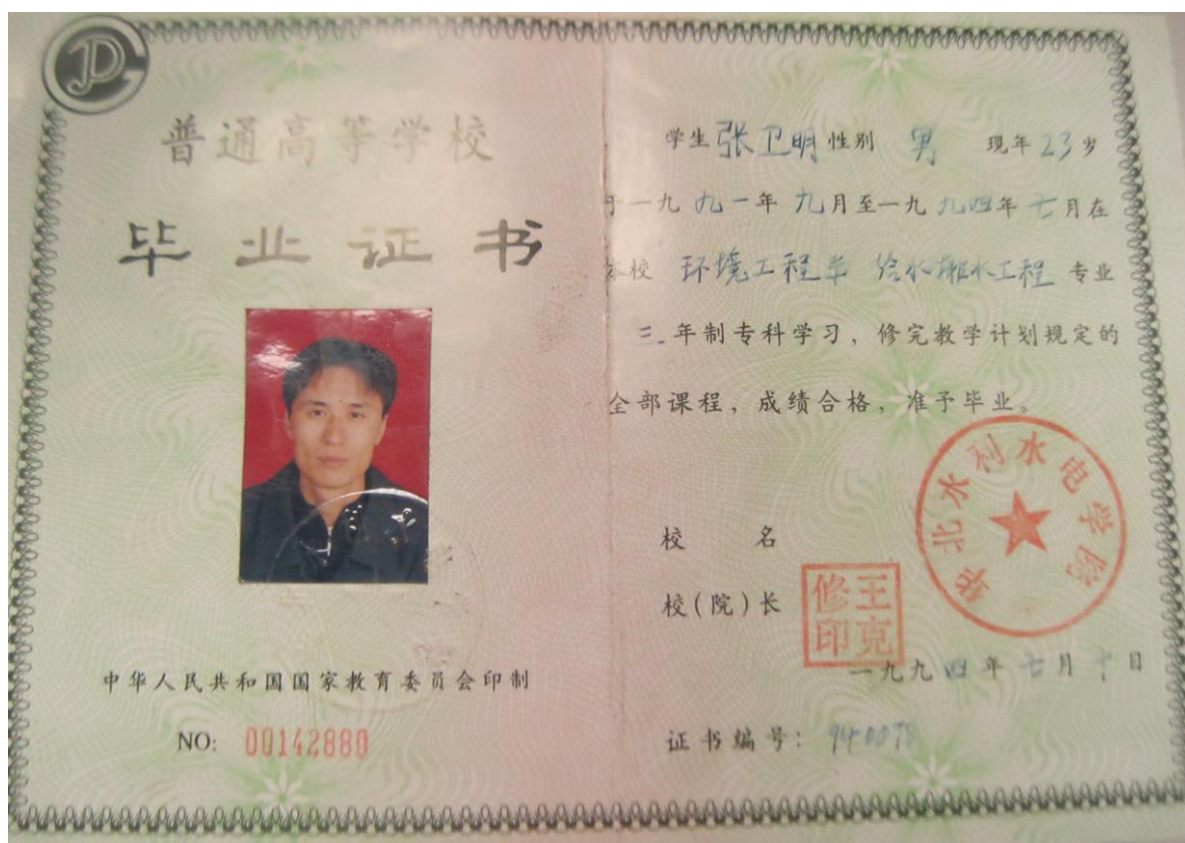 普通高等学校
毕业证书
中华人民共和国国家教育委员会印制
NO: 00142880
学生张卫明性别 男 现年23岁
于一九九一年九月至一九九四年七月在
本校 环境工程系 给水排水工程 专业
三年制专科学习，修完教学计划规定的
全部课程，成绩合格，准予毕业。
华北水利水电学院
校 名
校(院)长
王克修印
一九九四年七月十日
证书编号: 940078